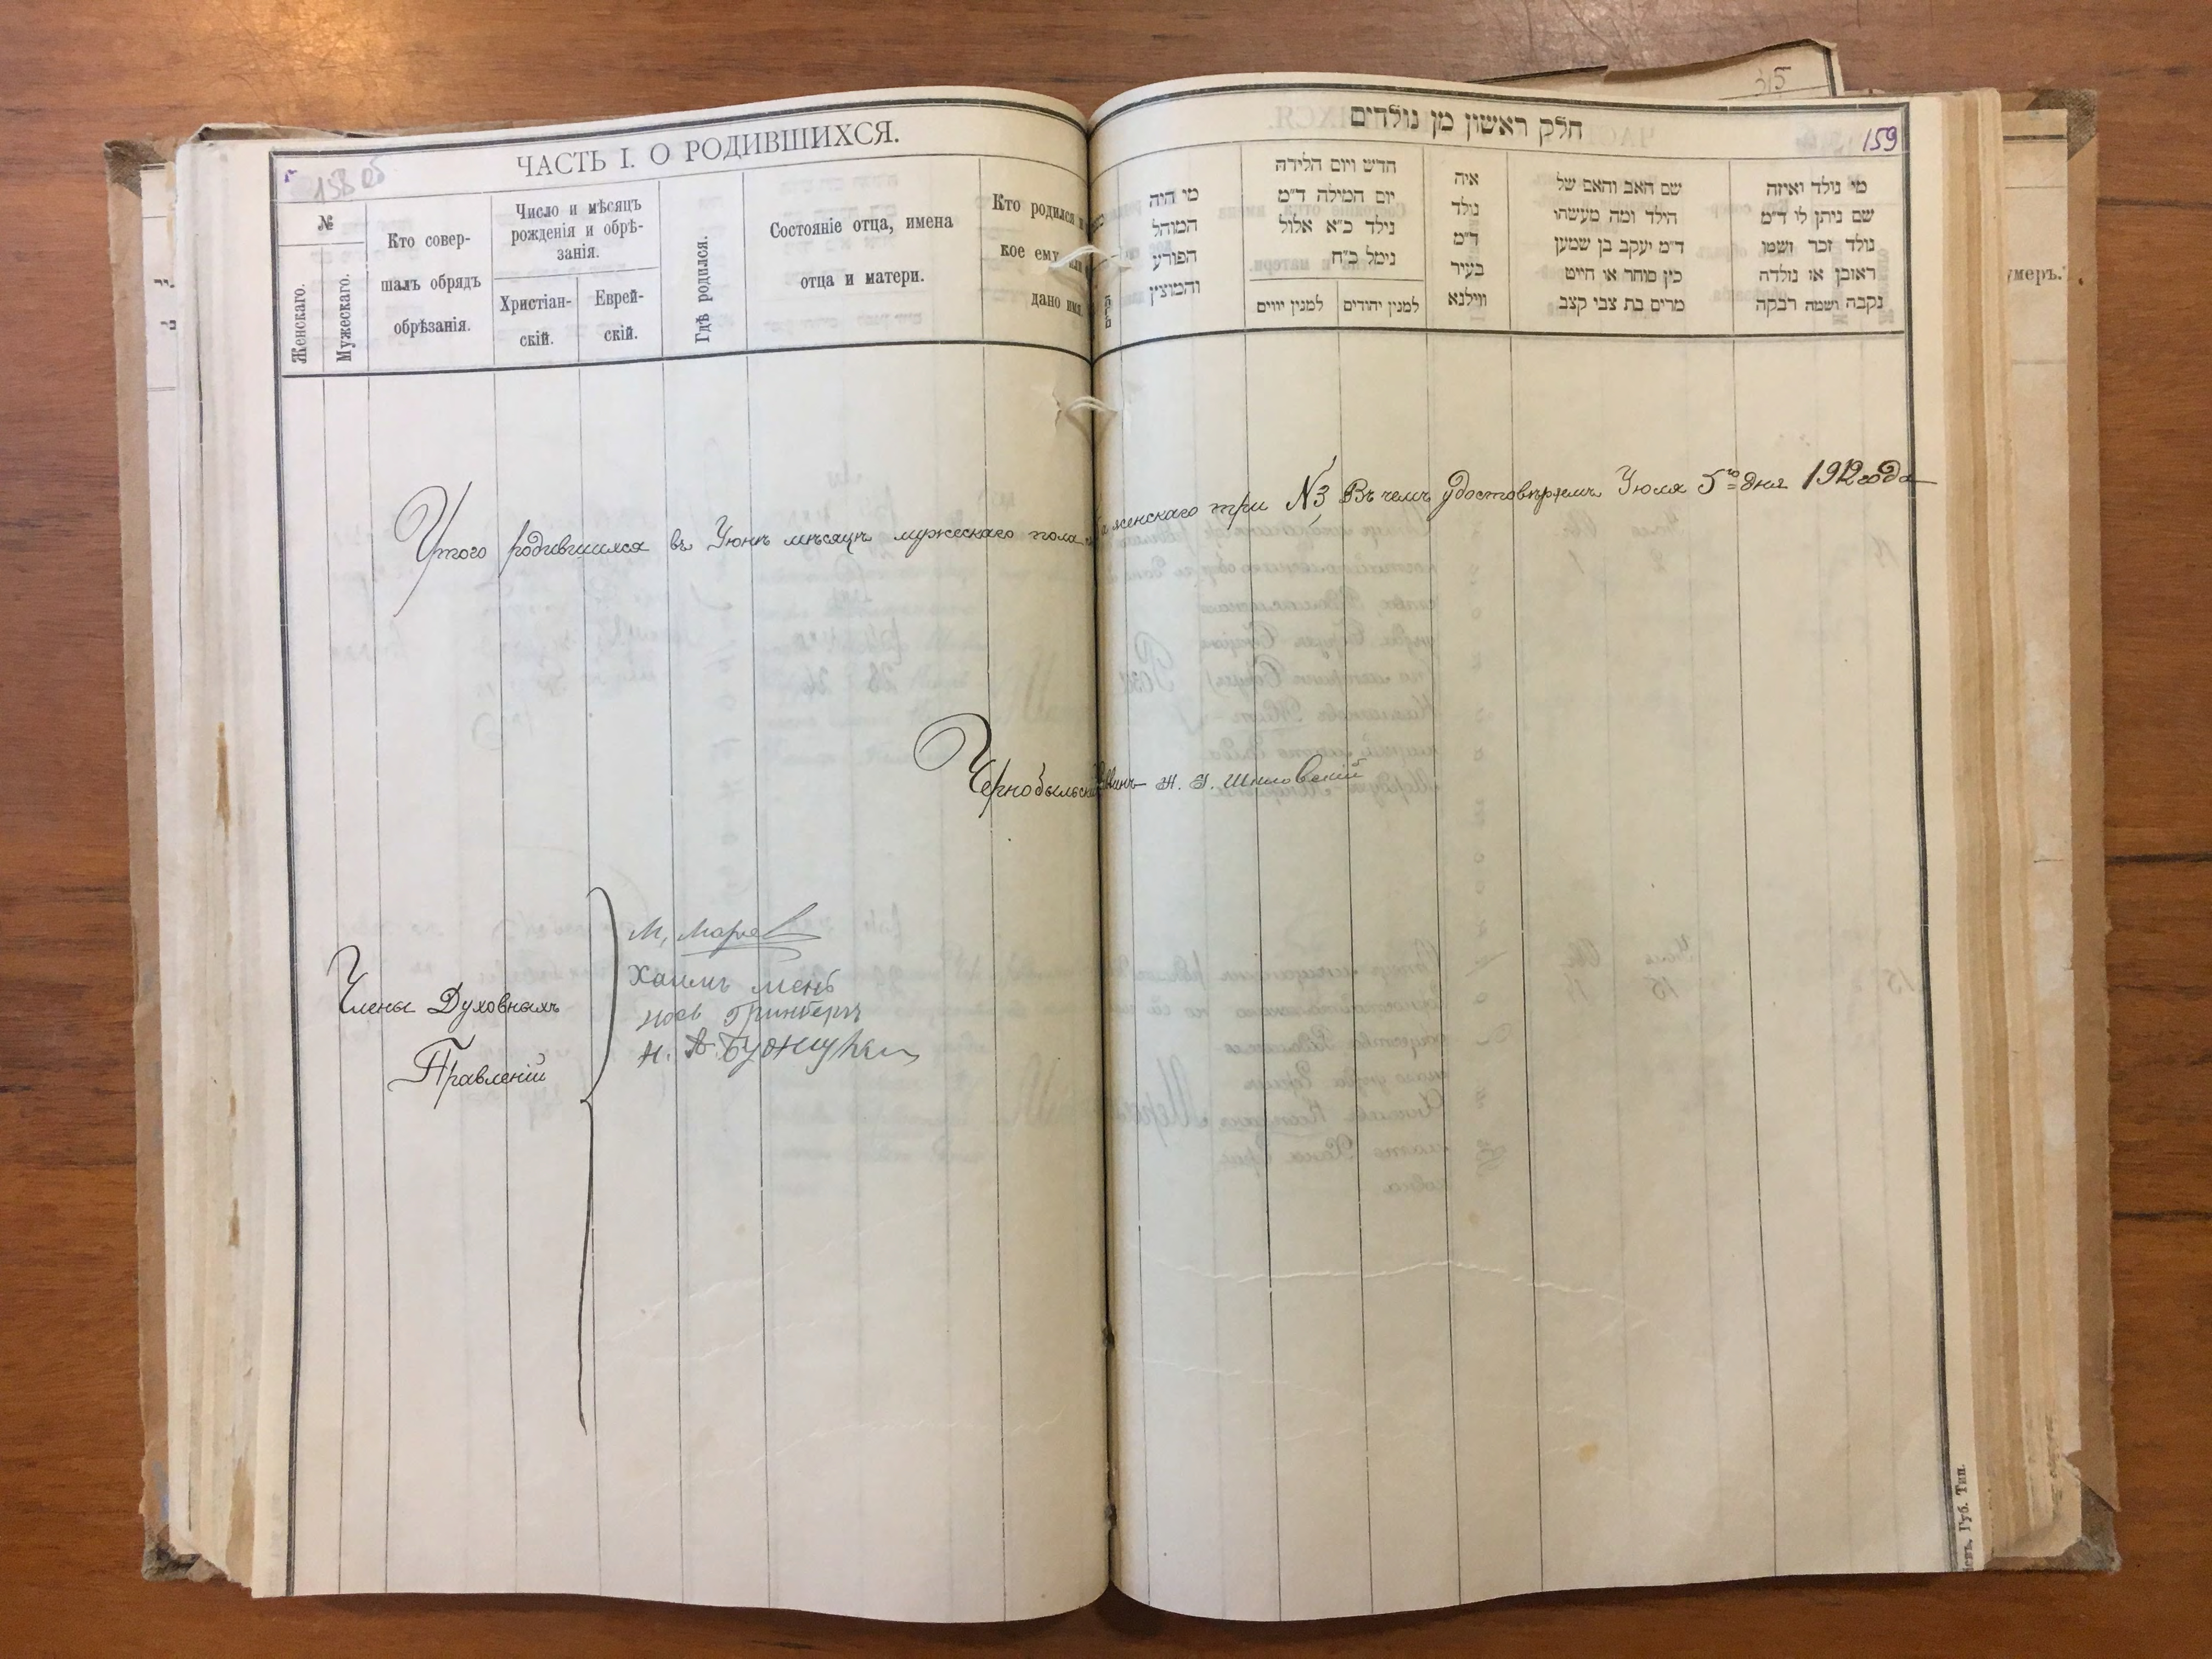 ЧАСТЬ I. О РОДИВШИХСЯ.
№
Женскаго.
Мужескаго.
Кто совер-
шалъ обрядъ
обрѣзанія.
Число и мѣсяцъ
рожденія и обрѣ-
занія.
Христіан-
скій.
Еврей-
скій.
Гдѣ родился.
Состояніе отца, имена
отца и матери.
Кто родился
кое ему
дано имя.
חלק ראשון מן נולדים
159
35
מי היה
המוהל
הפורע
והמוצץ
חדש ויום הלידה
יום המילה ד"מ
נילד כ"א אלול
נימל כ"ח
למנין יווים
למנין יהודים
איה
נולד
ד"מ
בעיר
ווילנא
שם האב והאם של
הילד ומה מעשהו
ד"מ יעקב בן שמען
כין סוחר או חייט
מרים בת צבי קצב
מי נולד ואיזה
שם ניתן לו ד"מ
נולד זכר ושמו
ראובן או נולדה
נקבה ושמה רבקה
умеръ.
Итого родившихся въ Июнѣ мѣсяцѣ мужескаго пола женскаго три №3 Въ чемъ удостовѣряемъ Июля 5го дня 1912 года
Чернобыльскій Раввинъ
Члены Духовныхъ
Правленій
М.
Хаимъ Мень
Гринбергъ
Губ. Тип.